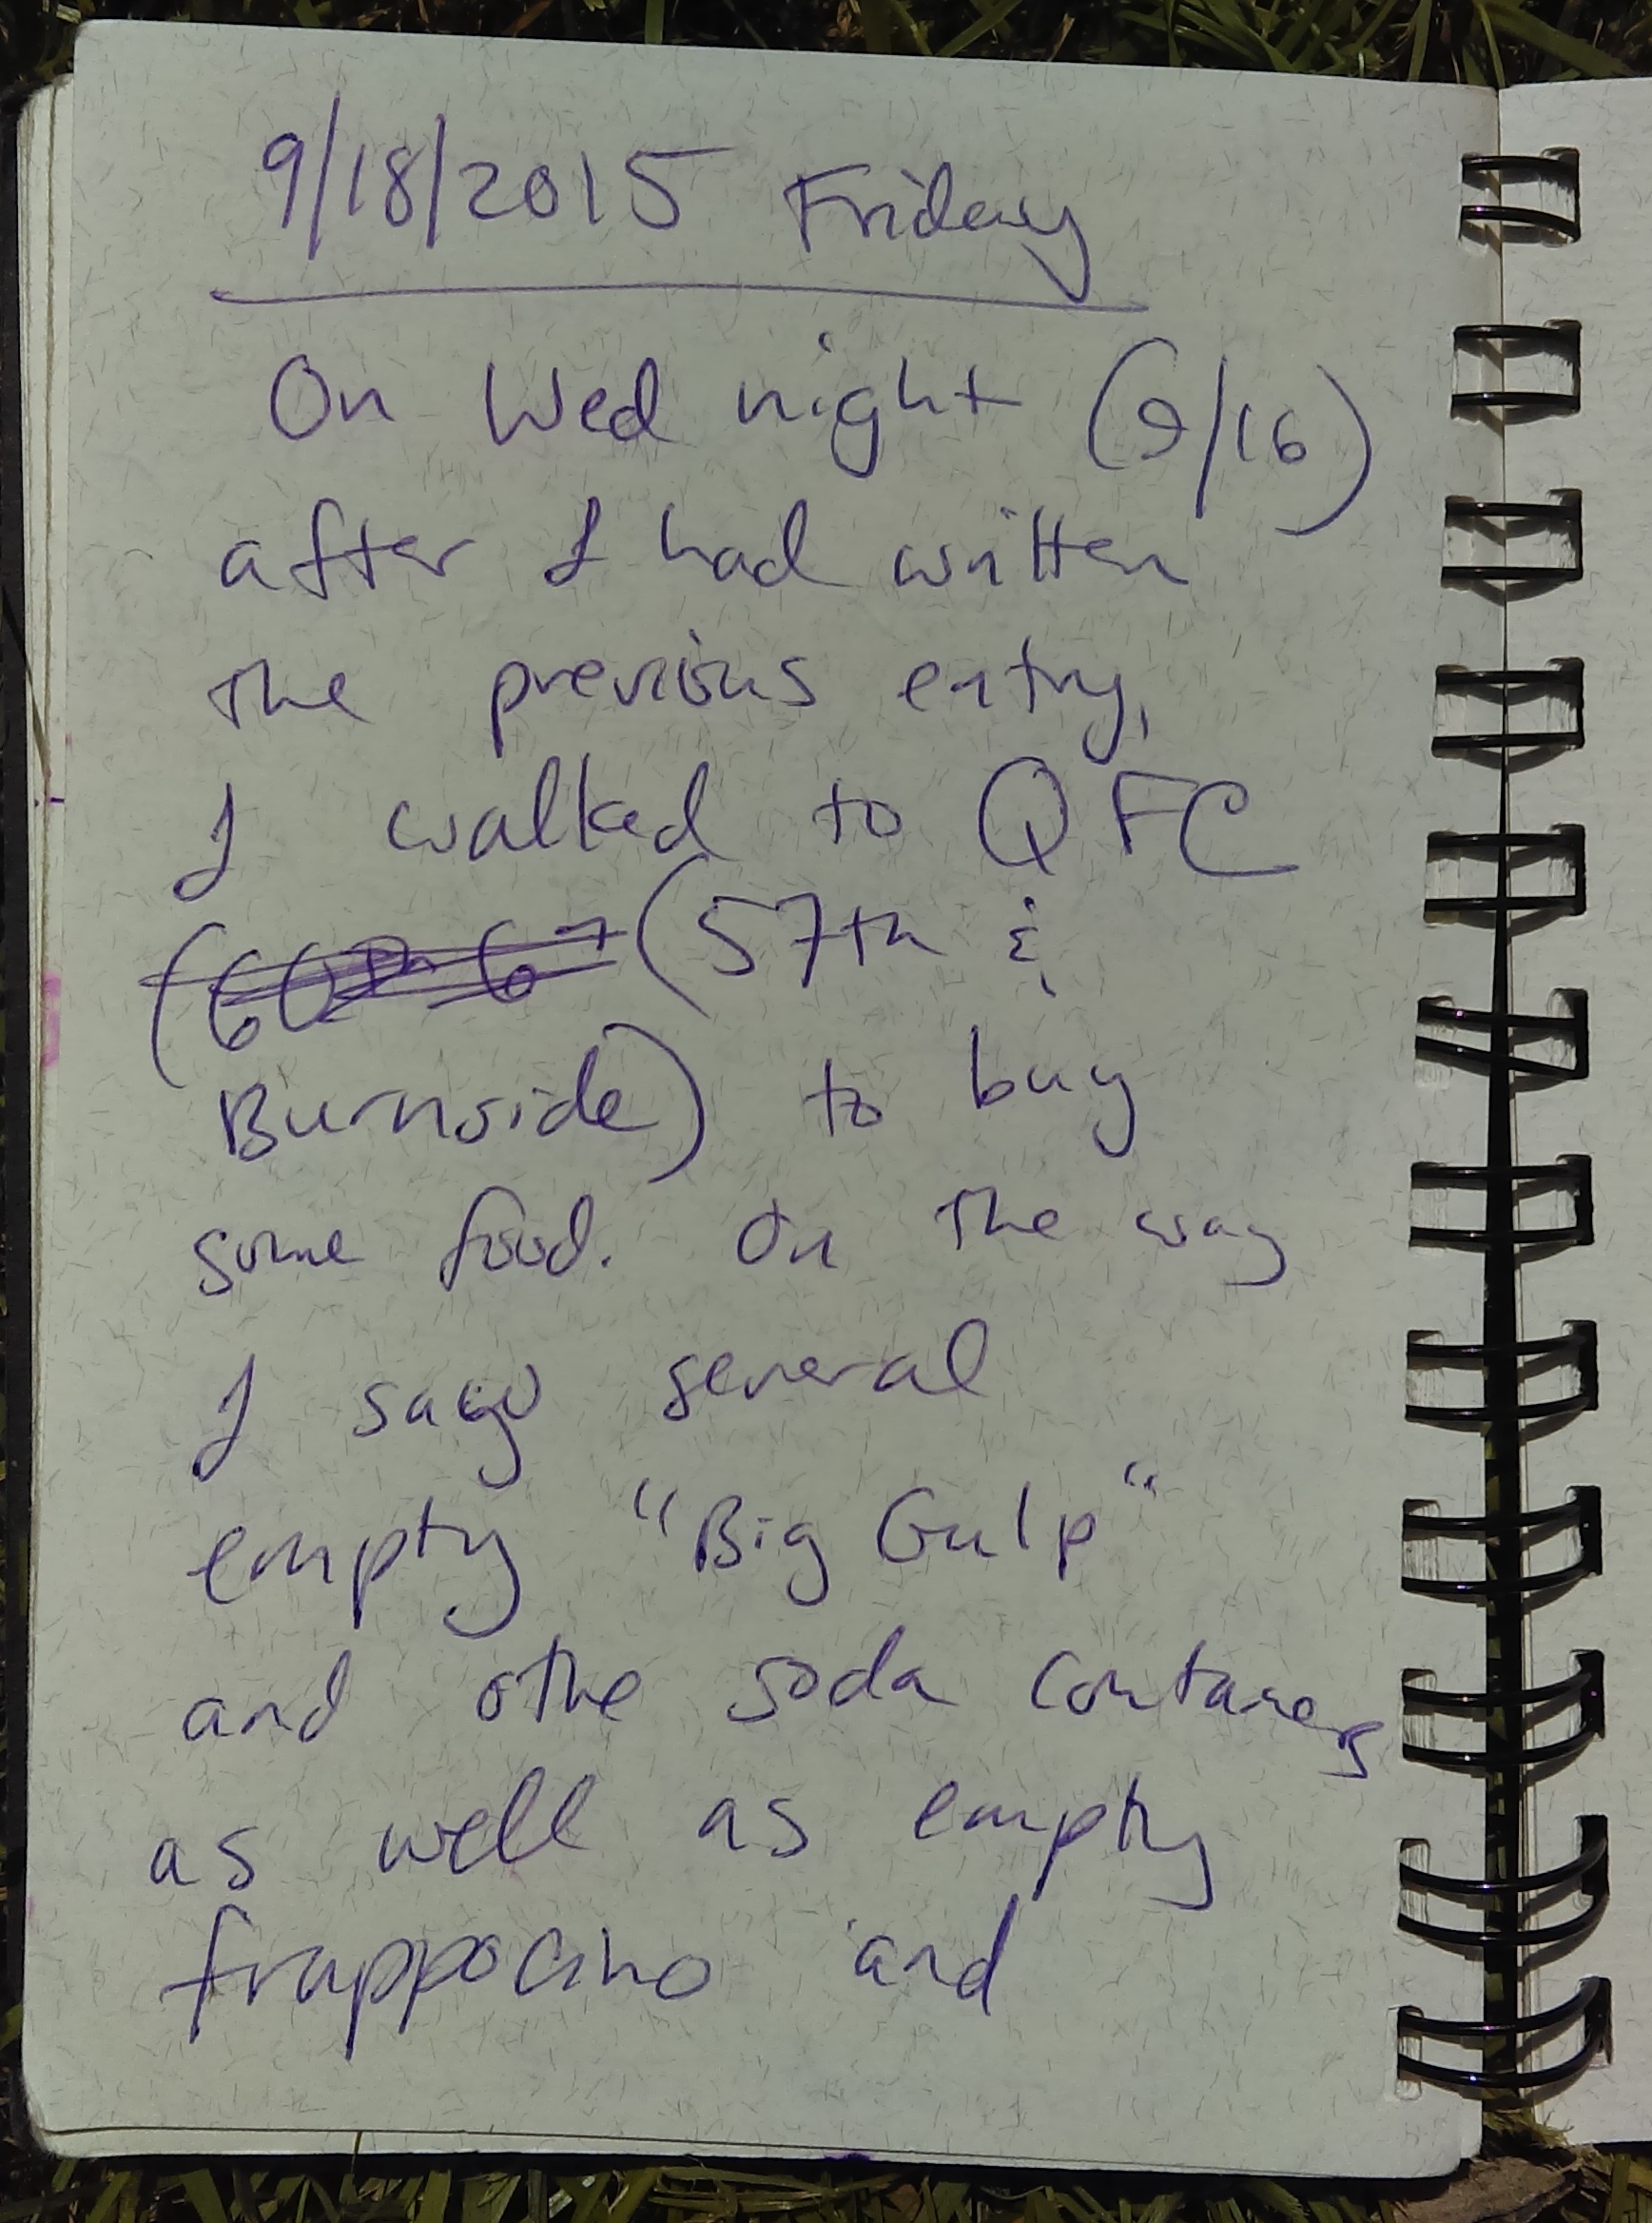 9/18/2015 Friday
On Wed night (9/16)
after I had written
the previous entry,
I walked to QFC
(57th &
Burnside) to buy
some food. On the way
I saw several
empty "Big Gulp"
and othe soda contaners
as well as empty
frappocino and